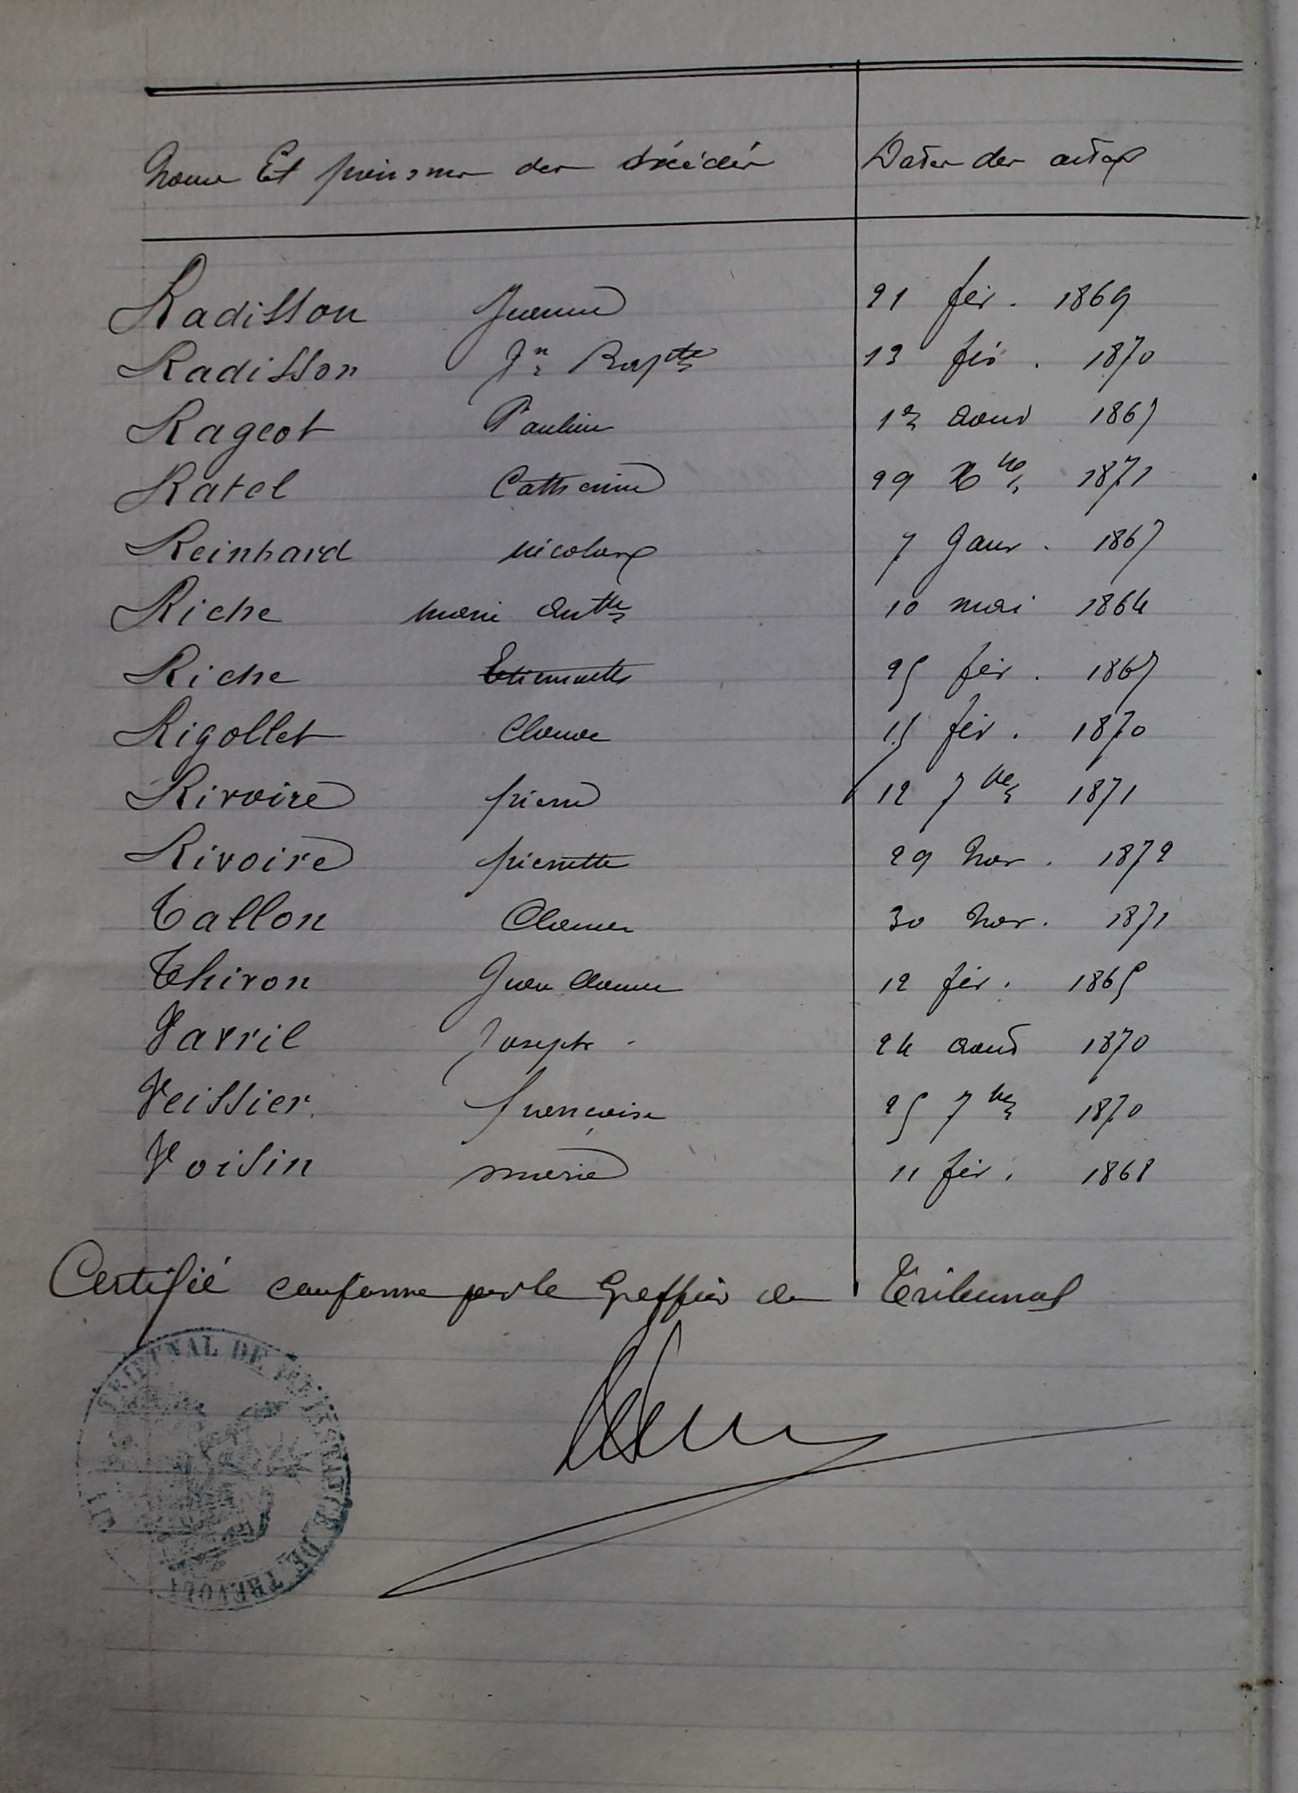 Noms Et prénoms des décédés Dates des actes
Radisson Jeanne 21 fév. 1869
Radisson Jn Bapte 13 fév. 1870
Rageot Pauline 12 aout 1867
Ratel Catherine 29 Xbre 1871
Reinhard nicolas 7 Janv. 1867
Riche marie Antte 10 mai 1864
Riche Etiennette 25 fév. 1867
Rigollet Claude 15 fév. 1870
Rivoire pierre 12 7bre 1871
Rivoire pierrette 29 Nov. 1872
Tallon Claude 30 Nov. 1871
Thivon Jean Claude 12 fév. 1865
Vavril Joseph 24 aout 1870
Veissier francoise 25 7bre 1870
Voisin marie 11 fév. 1868
Certifié conforme par le Greffier du Tribunal
TRIBUNAL DE 1ERE INSTANCE DE TREVOUX